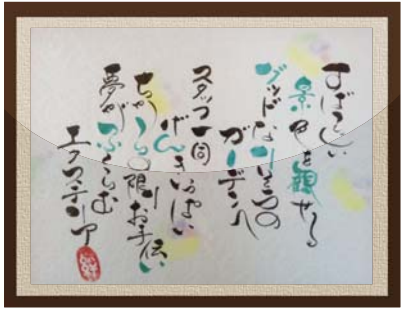 すばらしい
景色を観せる
グッドなりそうの
ガーデンへ
スタッフ一同
げんきいっぱい
ちからの限りお手伝い
夢がふくらむ
エクステリア